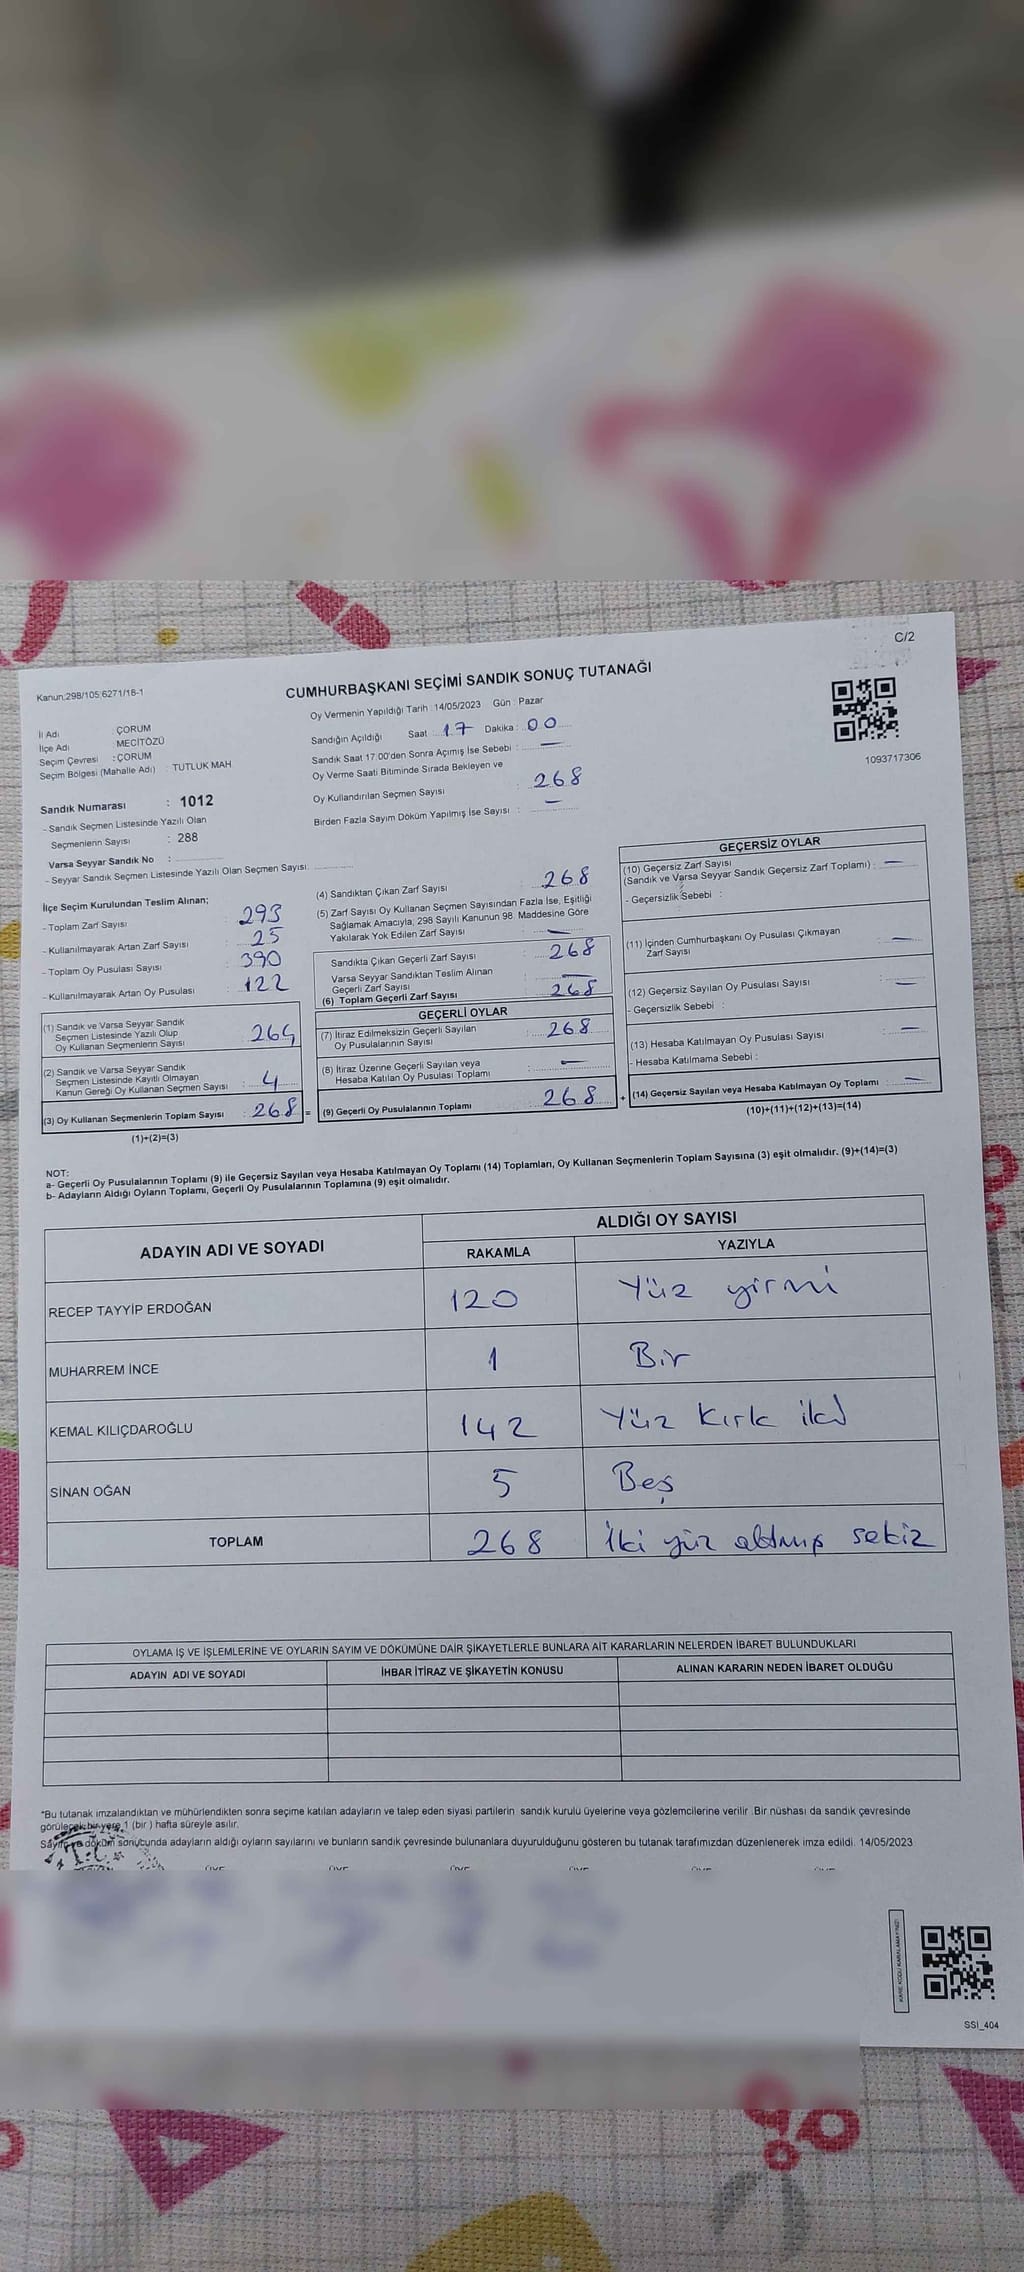 C/2
Kanun;298/105;6271/18-1
CUMHURBAŞKANI SEÇİMİ SANDIK SONUÇ TUTANAĞI
Oy Vermenin Yapıldığı Tarih : 14/05/2023 Gün : Pazar
İl Adı ÇORUM
İlçe Adı MECİTÖZÜ
Seçim Çevresi : ÇORUM
Seçim Bölgesi (Mahalle Adı) : TUTLUK MAH.
Sandığın Açıldığı Saat 17 Dakika : 00
Sandık Saat 17:00'den Sonra Açımış İse Sebebi : —
Oy Verme Saati Bitiminde Sırada Bekleyen ve
Oy Kullandırılan Seçmen Sayısı : 268
Birden Fazla Sayım Döküm Yapılmış İse Sayısı : —
1093717306
Sandık Numarası : 1012
- Sandık Seçmen Listesinde Yazılı Olan
Seçmenlerin Sayısı : 288
Varsa Seyyar Sandık No :
- Seyyar Sandık Seçmen Listesinde Yazılı Olan Seçmen Sayısı:
İlçe Seçim Kurulundan Teslim Alınan;
- Toplam Zarf Sayısı : 293
- Kullanılmayarak Artan Zarf Sayısı : 25
- Toplam Oy Pusulası Sayısı : 390
- Kullanılmayarak Artan Oy Pusulası : 122
(1) Sandık ve Varsa Seyyar Sandık
Seçmen Listesinde Yazılı Olup
Oy Kullanan Seçmenlerin Sayısı : 264
(2) Sandık ve Varsa Seyyar Sandık
Seçmen Listesinde Kayıtlı Olmayan
Kanun Gereği Oy Kullanan Seçmen Sayısı : 4
(3) Oy Kullanan Seçmenlerin Toplam Sayısı : 268 =
(1)+(2)=(3)
(4) Sandıktan Çıkan Zarf Sayısı : 268
(5) Zarf Sayısı Oy Kullanan Seçmen Sayısından Fazla İse, Eşitliği
Sağlamak Amacıyla, 298 Sayılı Kanunun 98. Maddesine Göre
Yakılarak Yok Edilen Zarf Sayısı : —
Sandıkta Çıkan Geçerli Zarf Sayısı : 268
Varsa Seyyar Sandıktan Teslim Alınan
Geçerli Zarf Sayısı : —
(6) Toplam Geçerli Zarf Sayısı : 268
GEÇERLİ OYLAR
(7) İtiraz Edilmeksizin Geçerli Sayılan
Oy Pusulalarının Sayısı : 268
(8) İtiraz Üzerine Geçerli Sayılan veya
Hesaba Katılan Oy Pusulası Toplamı : —
(9) Geçerli Oy Pusulalarının Toplamı : 268 +
GEÇERSİZ OYLAR
(10) Geçersiz Zarf Sayısı
(Sandık ve Varsa Seyyar Sandık Geçersiz Zarf Toplamı) : —
- Geçersizlik Sebebi :
(11) İçinden Cumhurbaşkanı Oy Pusulası Çıkmayan
Zarf Sayısı : —
(12) Geçersiz Sayılan Oy Pusulası Sayısı : —
- Geçersizlik Sebebi :
(13) Hesaba Katılmayan Oy Pusulası Sayısı : —
- Hesaba Katılmama Sebebi :
(14) Geçersiz Sayılan veya Hesaba Katılmayan Oy Toplamı : —
(10)+(11)+(12)+(13)=(14)
NOT:
a- Geçerli Oy Pusulalarının Toplamı (9) ile Geçersiz Sayılan veya Hesaba Katılmayan Oy Toplamı (14) Toplamları, Oy Kullanan Seçmenlerin Toplam Sayısına (3) eşit olmalıdır. (9)+(14)=(3)
b- Adayların Aldığı Oyların Toplamı, Geçerli Oy Pusulalarının Toplamına (9) eşit olmalıdır.
ADAYIN ADI VE SOYADI ALDIĞI OY SAYISI
RAKAMLA YAZIYLA
RECEP TAYYİP ERDOĞAN 120 Yüz yirmi
MUHARREM İNCE 1 Bir
KEMAL KILIÇDAROĞLU 142 Yüz kırk iki
SİNAN OĞAN 5 Beş
TOPLAM 268 İki yüz altmış sekiz
OYLAMA İŞ VE İŞLEMLERİNE VE OYLARIN SAYIM VE DÖKÜMÜNE DAİR ŞİKAYETLERLE BUNLARA AİT KARARLARIN NELERDEN İBARET BULUNDUKLARI
ADAYIN ADI VE SOYADI İHBAR İTİRAZ VE ŞİKAYETİN KONUSU ALINAN KARARIN NEDEN İBARET OLDUĞU
*Bu tutanak imzalandıktan ve mühürlendikten sonra seçime katılan adayların ve talep eden siyasi partilerin sandık kurulu üyelerine veya gözlemcilerine verilir. Bir nüshası da sandık çevresinde
görülecek bir yere 1 (bir ) hafta süreyle asılır.
Sayım ve döküm sonucunda adayların aldığı oyların sayılarını ve bunların sandık çevresinde bulunanlara duyurulduğunu gösteren bu tutanak tarafımızdan düzenlenerek imza edildi. 14/05/2023
T.C.
ÜYE ÜYE ÜYE ÜYE ÜYE ÜYE
KARE KODU KARALAMAYINIZ!
SSI_404